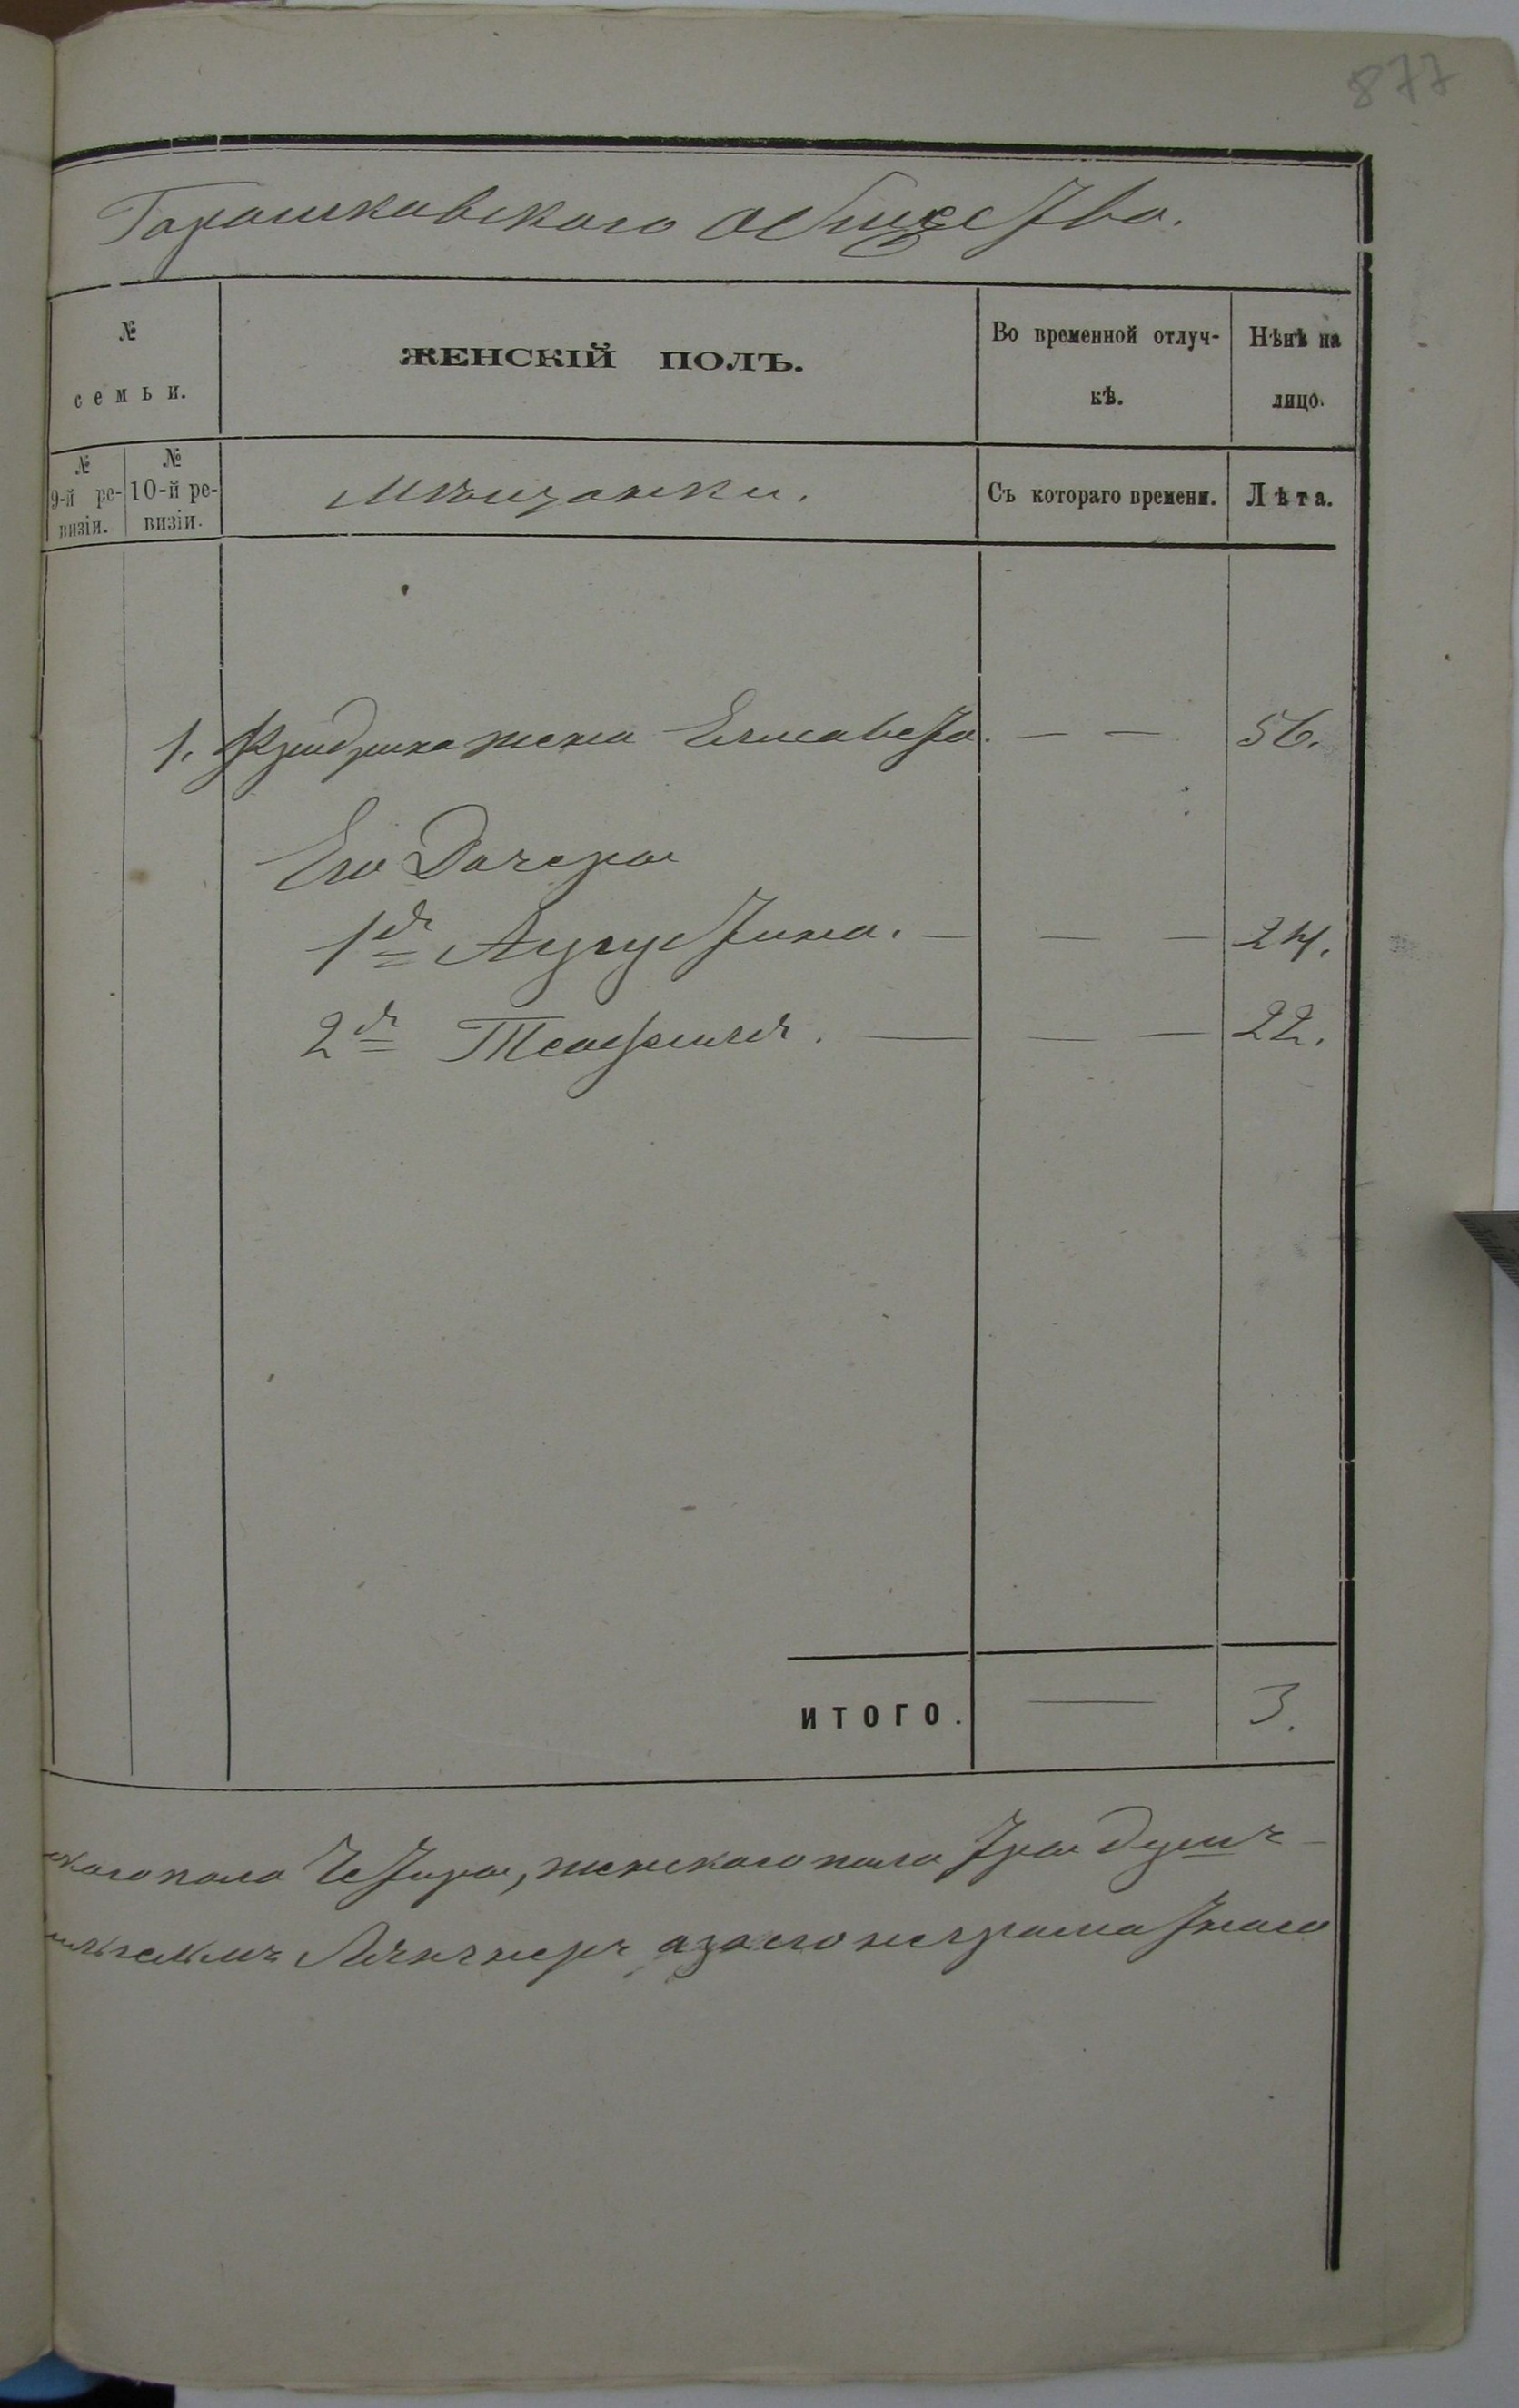 877
Гарашковского общества.
№ семьи.
ЖЕНСКІЙ ПОЛЪ.
Во временной отлуч-
кѣ.
Нѣнѣ на
лицо.
№
9-й ре-
визіи.
№
10-й ре-
визіи.
Мѣщанки.
Съ котораго времени.
Лѣта.
1. Фридриха жена Елисавета. — — 56.
Его Дочери
1я Аугустина. — — — 24.
2я — — — 22.
ИТОГО. — 3.
пола Четыре, женскаго пола три душъ
а за его неграматнаго